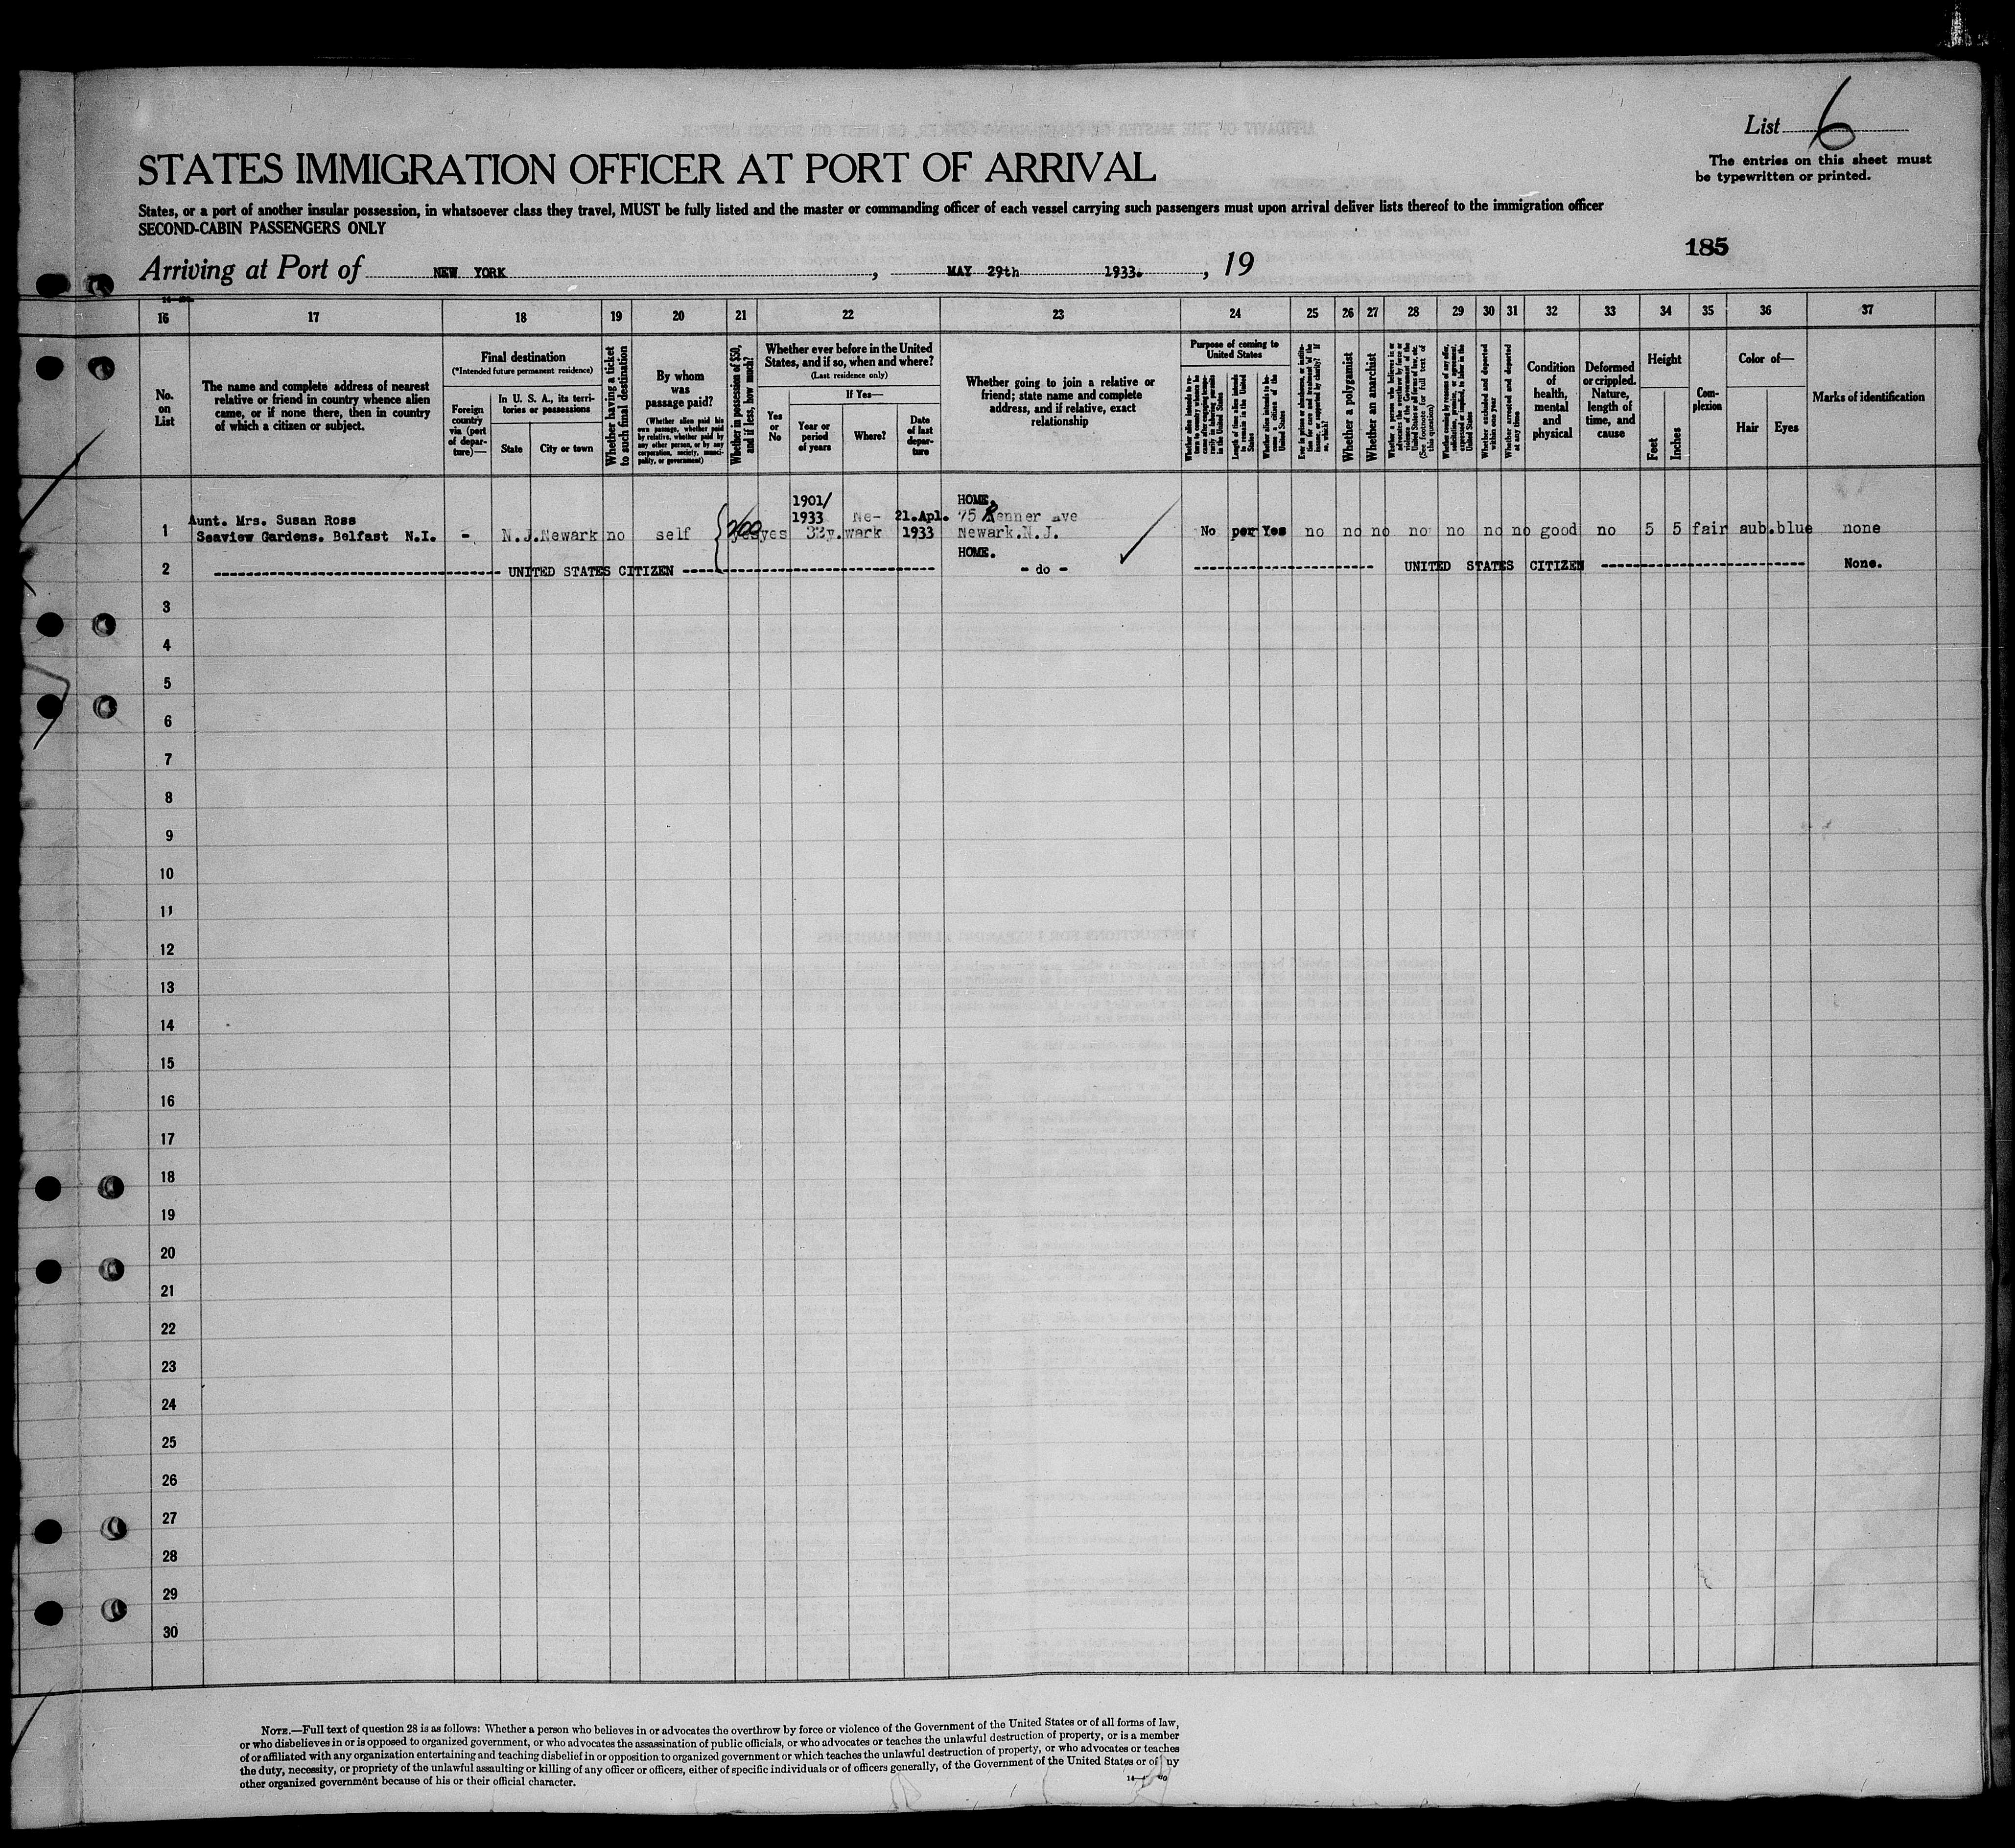 List 6
The entries on this sheet must
be typewritten or printed.
STATES IMMIGRATION OFFICER AT PORT OF ARRIVAL
States, or a port of another insular possession, in whatsoever class they travel, MUST be fully listed and the master or commanding officer of each vessel carrying such passengers must upon arrival deliver lists thereof to the immigration officer
SECOND-CABIN PASSENGERS ONLY
185
Arriving at Port of NEW YORK , MAY 29th 1933. , 19
16 17 18 19 20 21 22 23 24 25 26 27 28 29 30 31 32 33 34 35 36 37
No.
on
List
The name and complete address of nearest
relative or friend in country whence alien
came, or if none there, then in country
of which a citizen or subject.
Final destination
(*Intended future permanent residence)
Foreign
country
via (port
of depar-
ture)—
In U. S. A., its terri-
tories or possessions
State
City or town
Whether having a ticket
to such final destination
By whom
was
passage paid?
(Whether alien paid his
own passage, whether paid
by relative, whether paid by
any other person, or by any
corporation, society, munici-
pality, or government)
Whether in possession of $50,
and if less, how much?
Whether ever before in the United
States, and if so, when and where?
(Last residence only)
Yes
or
No
If Yes—
Year or
period
of years
Where?
Date
of last
depar-
ture
Whether going to join a relative or
friend; state name and complete
address, and if relative, exact
relationship
Purpose of coming to
United States
Whether alien intends to re-
turn to country whence he
came after engaging tempo-
rarily in laboring pursuits
in the United States
Length of time alien intends
to remain in the United
States
Whether alien intends to be-
come a citizen of the
United States
Ever in prison or almshouse, or institu-
tion for care and treatment of the
insane, or supported by charity? If
so, which?
Whether a polygamist
Whether an anarchist
(See footnote for full text of
this question)
Whether coming by reason of any offer,
solicitation, promise, or agreement,
expressed or implied, to labor in the
United States
Whether excluded and deported
within one year
Whether arrested and deported
at any time
Condition
of
health,
mental
and
physical
Deformed
or crippled.
Nature,
length of
time, and
cause
Height
Feet
Inches
Com-
plexion
Color of—
Hair
Eyes
Marks of identification
1901/ HOME.
Aunt. Mrs. Susan Ross 1933 Ne- 21.Apl. 75 Renner Ave
1 Seaview Gardens. Belfast N.I. - N.J. Newark no self 200 yes yes 32y. wark 1933 Newark.N.J. No per Yes no no no no no no no good no 5 5 fair aub. blue none
HOME.
2 UNITED STATES CITIZEN - do - UNITED STATES CITIZEN None.
3
4
5
6
7
8
9
10
11
12
13
14
15
16
17
18
19
20
21
22
23
24
25
26
27
28
29
30
NOTE.—Full text of question 28 is as follows: Whether a person who believes in or advocates the overthrow by force or violence of the Government of the United States or of all forms of law,
or who disbelieves in or is opposed to organized government, or who advocates the assassination of public officials, or who advocates or teaches the unlawful destruction of property, or is a member
of or affiliated with any organization entertaining and teaching disbelief in or opposition to organized government or which teaches the unlawful destruction of property, or who advocates or teaches
the duty, necessity, or propriety of the unlawful assaulting or killing of any officer or officers, either of specific individuals or of officers generally, of the Government of the United States or of any
other organized government because of his or their official character.